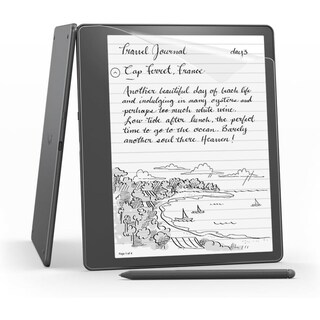 Travel Journal day 3
Cap Ferret, France
Another beautiful day of beach life
and indulging in many oysters and
perhaps too much white wine.
Low tide after lunch, the perfect
time to go to the ocean. Barely
another soul there. Heaven!
Page 1 of 5